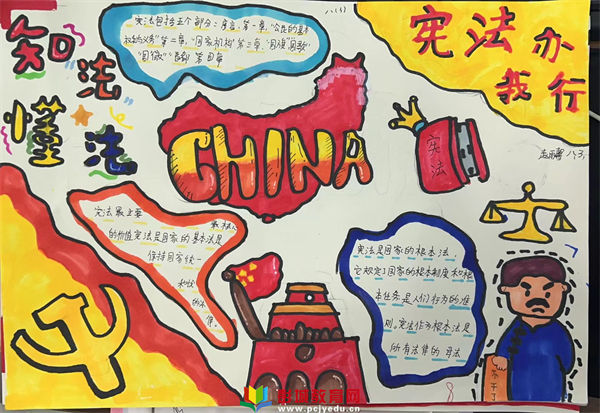 知法
懂法
宪法包括五个部分：序言、第一章，"公民的基本
权利与义务"第二章，"国家机构"第三章，"国旗""国歌"
"国徽""首都"第四章
八(3)
宪法办
我行
八、3、
CHINA
宪法
宪法最主要
的价值宪法是国家的基本法是
保持国家统一
宪法是国家的根本法
它规定了国家的根本制度和根
本任务是人们行为的准
则。宪法作为根本法是
所有法律的母法
不干了
8
www.pcjyedu.cn